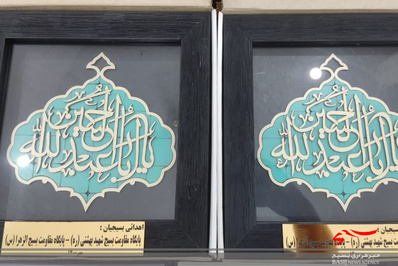 یا اباعبدالله الحسین
یا اباعبدالله الحسین
اهدائی بسیجیان :
پایگاه مقاومت بسیج شهید بهشتی (ره) – پایگاه مقاومت بسیج الزهرا (س)
بسیجیان :
پایگاه مقاومت بسیج شهید بهشتی (ره)
(س)
خبرگزاری بسیج
BASIJ NEWS AGENCY